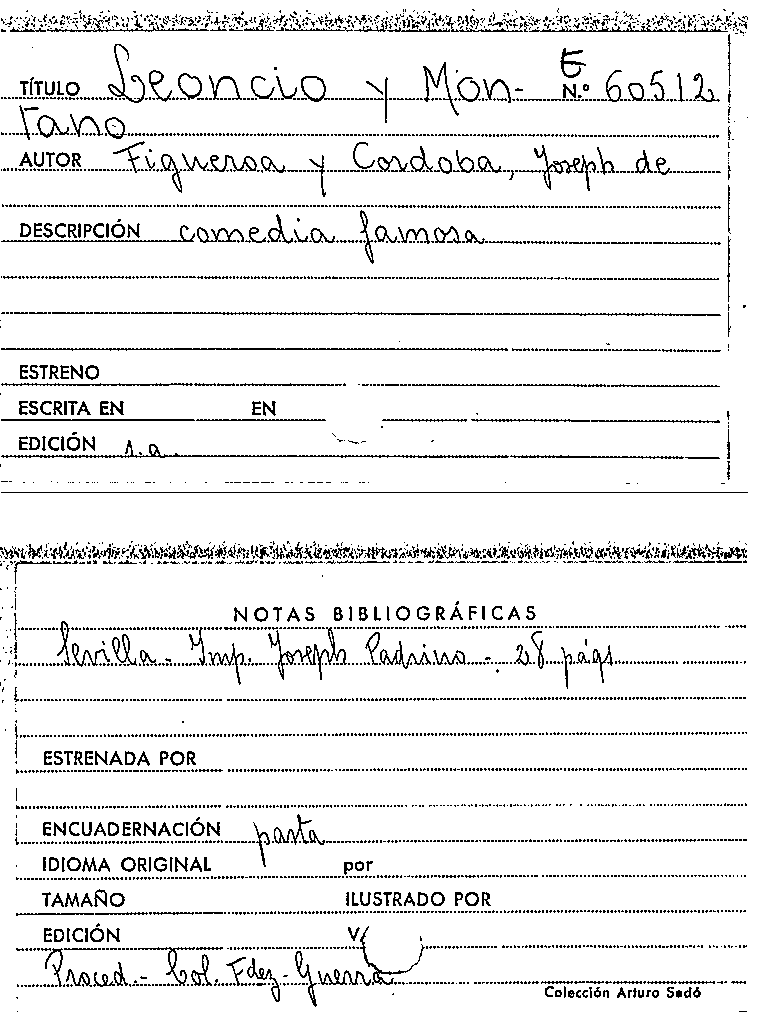 TÍTULO Leoncio y Mon- E N.º 60512
tano
AUTOR Figueroa y Cordoba, Joseph de
DESCRIPCIÓN comedia famosa
ESTRENO
ESCRITA EN EN
EDICIÓN s.a.
NOTAS BIBLIOGRÁFICAS
Sevilla - Imp. Joseph Padrino - 28 págs
ESTRENADA POR
ENCUADERNACIÓN pasta
IDIOMA ORIGINAL por
TAMAÑO ILUSTRADO POR
EDICIÓN
Proced.- Col. Fdez-Guerra
Colección Arturo Sedó